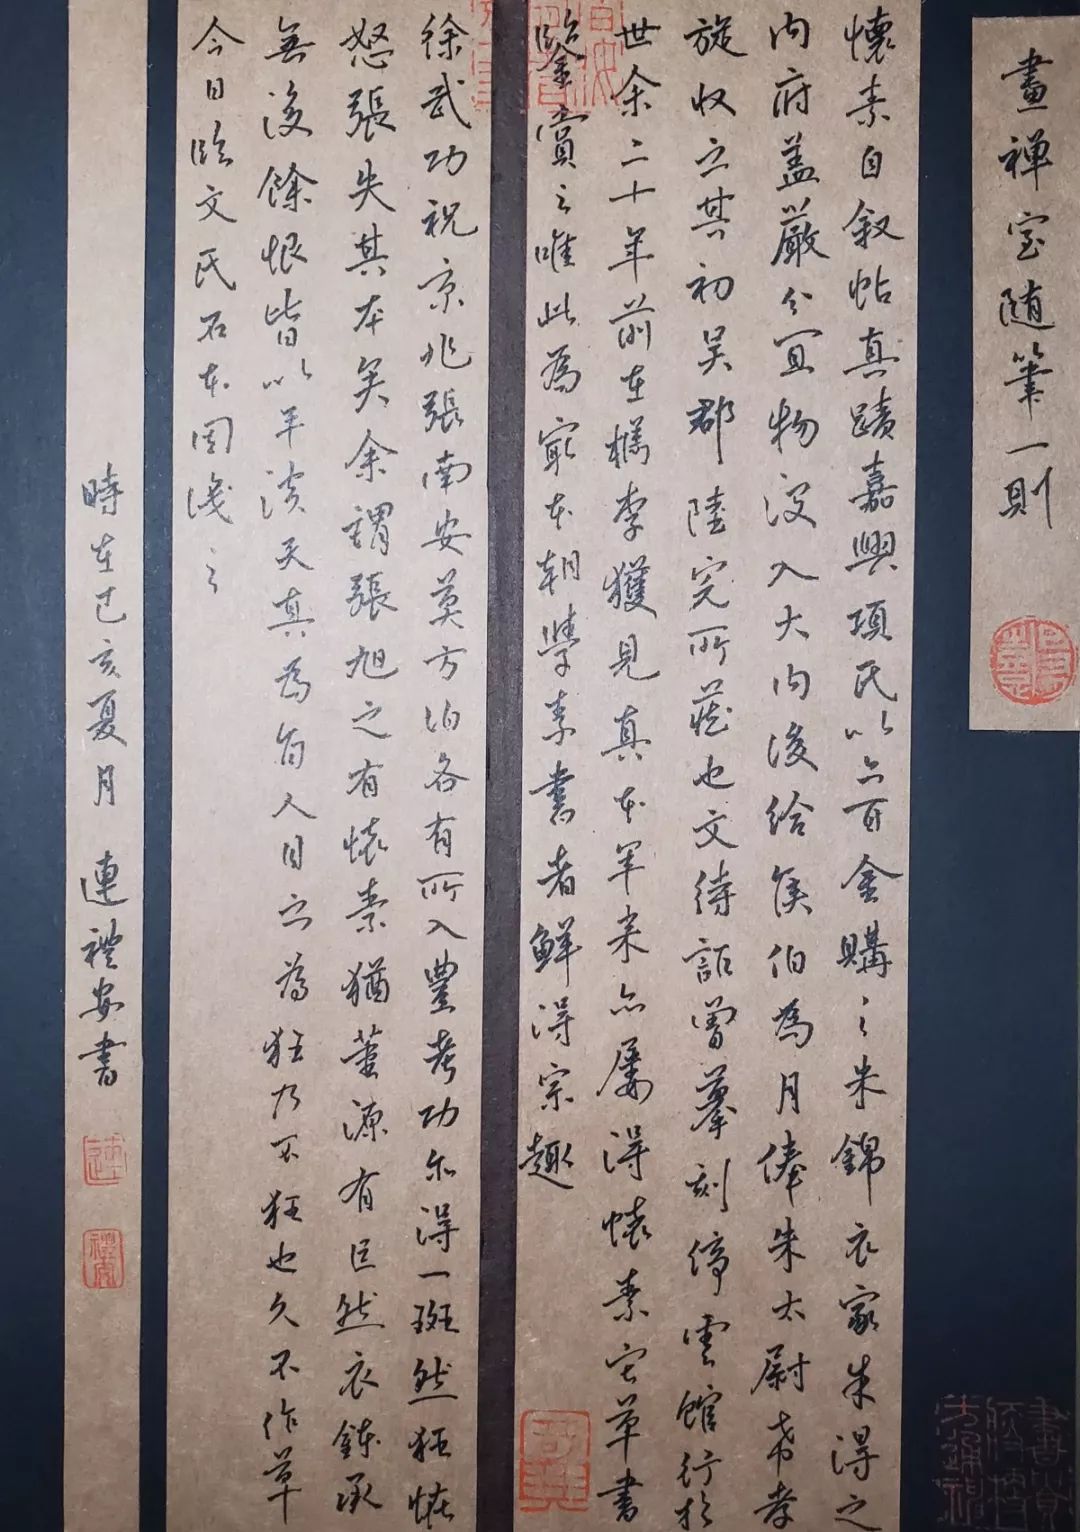 畫禅室随筆一則
懷素自叙帖真蹟嘉興項氏以六百金購之朱錦衣家朱得之
内府盖嚴分宜物没入大内後給侯伯為月俸朱太尉希孝
旋收之其初吴郡陸完所藏也文待詔曾摹刻停雲館行於
世余二十年前在檇李獲見真本年来亦屡得懷素它草書
臨鑒賞之唯此為冣本朝學素書者鮮得宗趣
徐武功祝京兆張南安莫方伯各有所入豊考功亦得一斑然狂怪
怒張失其本矣余謂張旭之有懷素猶董源有巨然衣鉢承
無後餘恨皆以平淡天真為旨人目之為狂乃不狂也久不作草
今日臨文氏石本因識之
時在己亥夏月 連禮安書
連
禮安